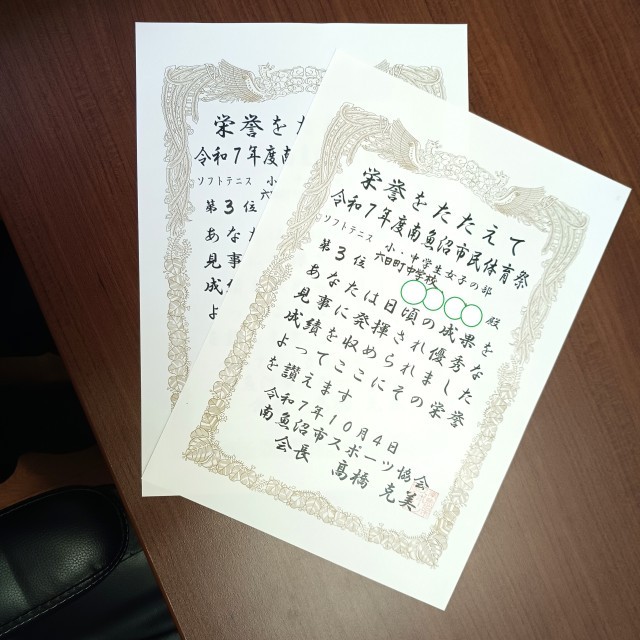 栄誉をたたえて
令和7年度南魚沼市民体育祭
ソフトテニス 小・中学生女子の部
第3位 六日町中学校
○○○○ 殿
あなたは日頃の成果を
見事に発揮され優秀な
成績を収められました
よってここにその栄誉
を讃えます
令和7年10月4日
南魚沼市スポーツ協会
会長 髙橋 克美
栄誉をた
令和7年度南
ソフトテニス 小
六
第3位
あなた
見事
成
よ